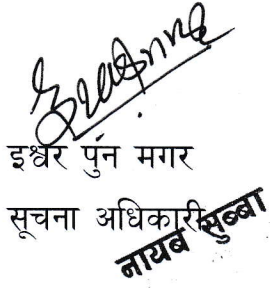 इश्वर पुन मगर
सूचना अधिकारी
नायब सुब्बा